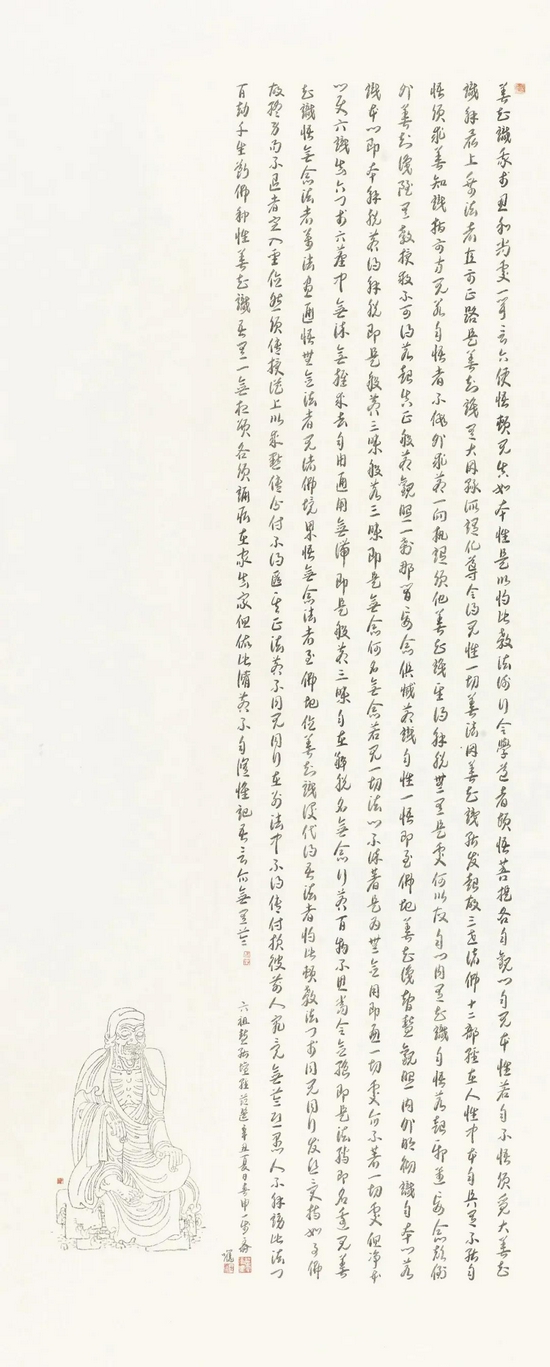 善知識我於忍和尚處一聞言下便悟頓見真如本性是以將此教法流行令學道者頓悟菩提各自觀心自見本性若自不悟須覓大善知
識解最上乘法者直示正路是善知識有大因緣所謂化導令得見性一切善法因善知識能發起故三世諸佛十二部經在人性中本自具有不能自
悟須求善知識指示方見若自悟者不假外求若一向執謂須他善知識望得解脫無有是處何以故自心內有知識自悟若起邪迷妄念顛倒
外善知識雖有教授救不可得若起真正般若觀照一剎那間妄念俱滅若識自性一悟即至佛地善知識智慧觀照內外明徹識自本心若
識本心即本解脫若得解脫即是般若三昧般若三昧即是無念何名無念若見一切法心不染著是為無念用即遍一切處亦不著一切處但淨本
心使六識出六門於六塵中無染無雜來去自由通用無滯即是般若三昧自在解脫名無念行若百物不思當令念絕即是法縛即名邊見善
知識悟無念法者萬法盡通悟無念法者見諸佛境界悟無念法者至佛地位善知識後代得吾法者將此頓教法門於同見同行發願受持如事佛
故終身而不退者定入聖位然須傳授從上以來默傳分付不得匿其正法若不同見同行在別法中不得傳付損彼前人究竟無益恐愚人不解謗此法門
百劫千生斷佛種性善知識吾有一無相頌各須誦取在家出家但依此修若不自修惟記吾言亦無有益
六祖慧能壇經節選辛丑夏日